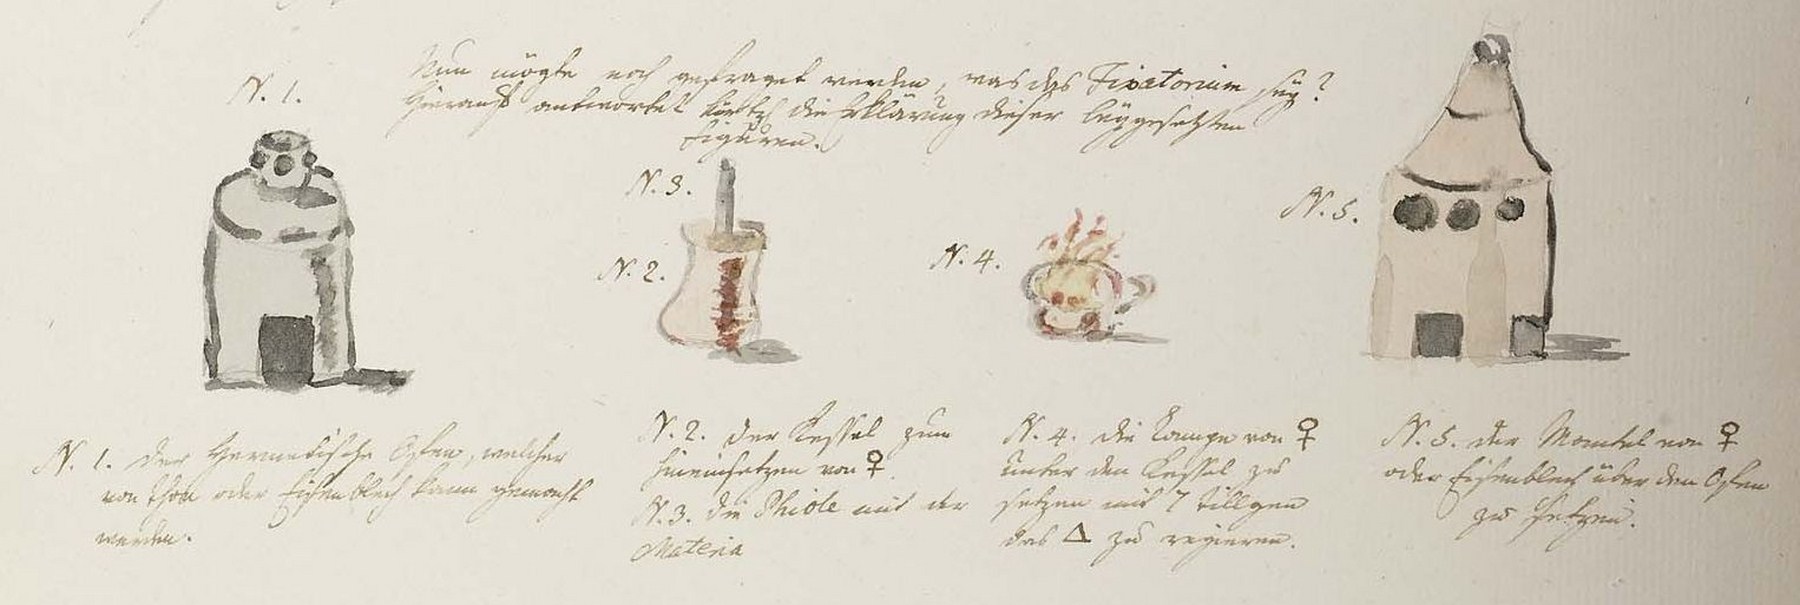 N. 1.
Nun mögte noch gefraget werden, was das Fixatorium sey?
Hierauf antwortet kürtzl die Erklärung dieser beygesetzten
Figuren.
N. 3.
N. 2.
N. 4.
N. 5.
N. 1. Der Hermetische Ofen, welcher
von Thon oder Eisenblech kann gemacht
werden.
N. 2. Der Kessel zum
hineinsetzen von ♀.
N. 3. Die Phiole mit der
Materia
N. 4. die Lampe von ♀
unter den Kessel zu
setzen mit 7 Tillgen
das △ zu regieren.
N. 5. der Mantel von ♀
oder Eisenblech über den Ofen
zu setzen.